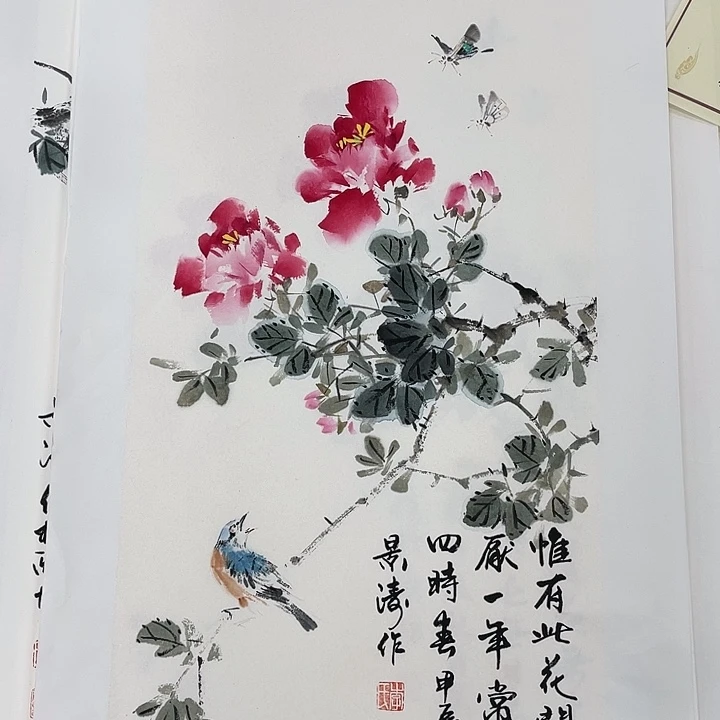 惟有此花開
厭一年常
四時春甲辰
景濤作